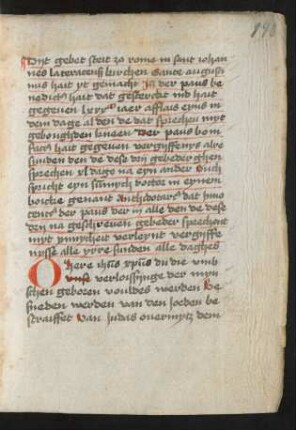 198
Dyt gebet steit zo rome in sint iohan
nes lateranens kirchen Sante augusti
nus hait yt gemacht Ja der pais be
nedictus hait dat gesterckt ind hait
gegeuen iaer afflais eyns in
dem dage al den de dat sprechen myt
geboighden kneen Der pais bom
facius hait gegeuen vergyffenys alre
sunden den de dese dry gebeder ghen
sprechen xl dage na eyn ander Ouch
spricht eyn doctor in eynem
boiche genant Antidotarius dat Inno
cencius der pais der in alle den de dese
dry na geschreuen gebeder sprechent
myt ynnycheit verleynt vergyffe
nysse alle yrre sunden alle daghes
O here ihesus xpus du die vmb
vnse verloissynge der myn
schen geboren wouldes werden be
sneden werden van den Joeden be
straiffet Van Judas ouermytz dem